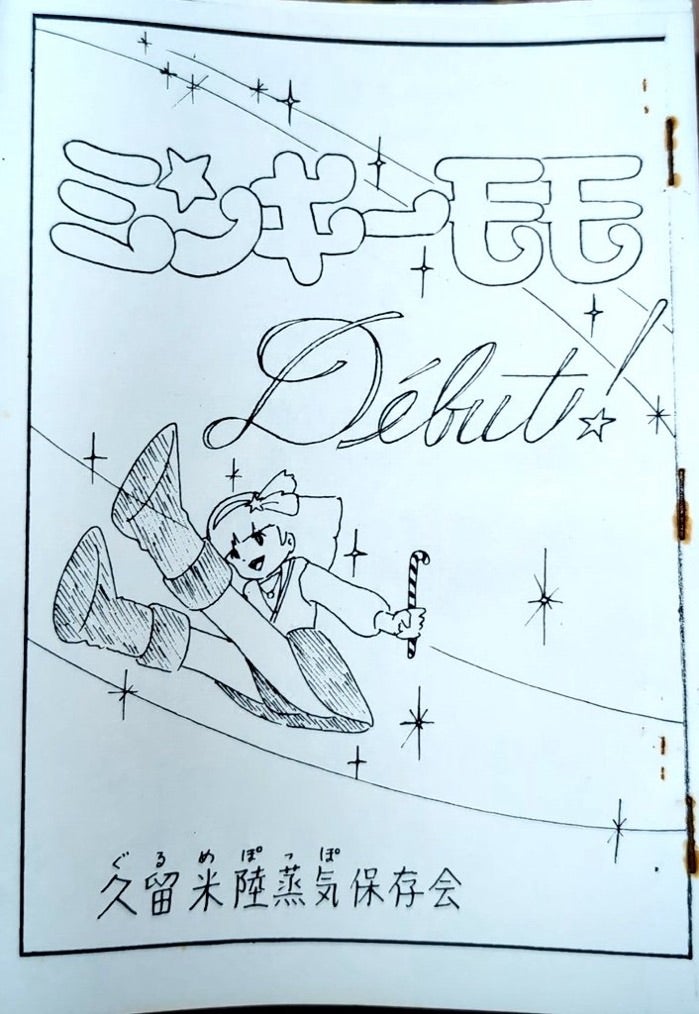 ミンキーモモ
Début!
ぐるめぽっぽ
久留米陸蒸気保存会